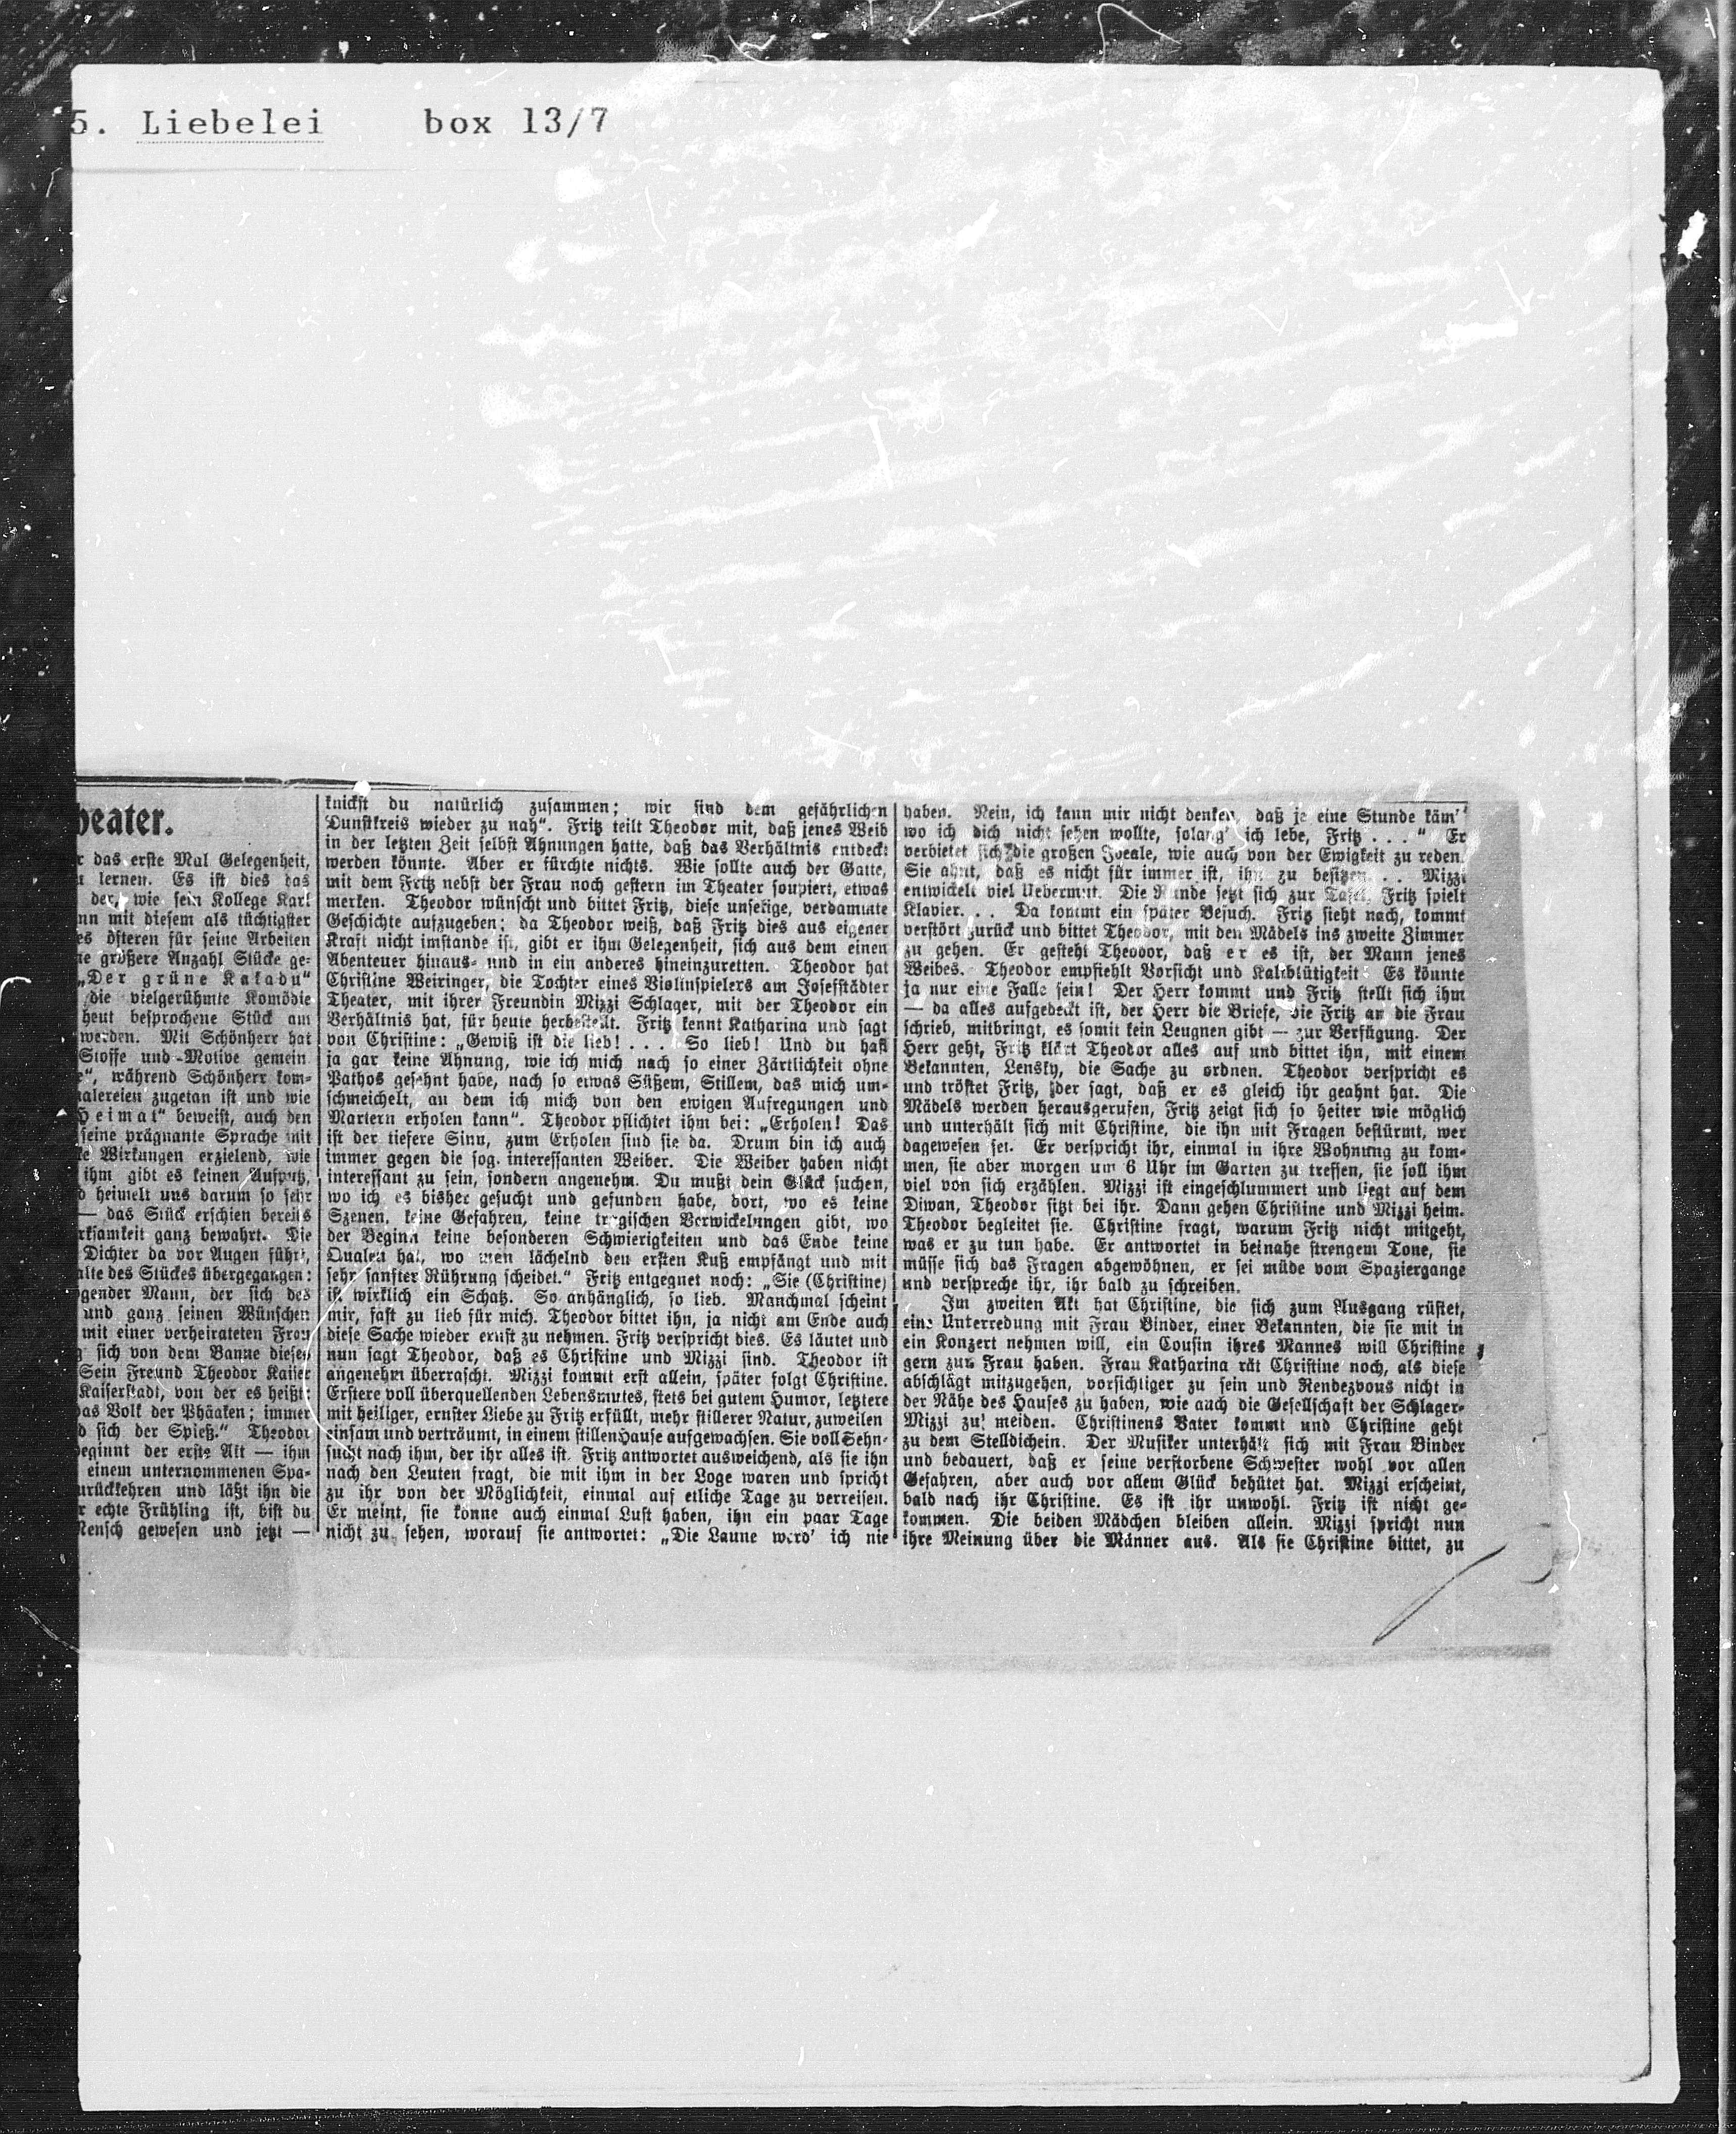 5. Liebelei box 13/7
heater.
r das erste Mal Gelegenheit,
lernen. Es ist dies das
der, wie sein Kollege Karl
nn mit diesem als tüchtigster
es öfteren für seine Arbeiten
ne größere Anzahl Stücke ge-
„Der grüne Kakadu“
die vielgerühmte Komödie
heut besprochene Stück am
werden. Mit Schönherr hat
Stoffe und -Motive gemein
e“, während Schönherr kom-
alereien zugetan ist und wie
Heimat“ beweist, auch den
seine prägnante Sprache mit
ke Wirkungen erzielend, wie
ihm gibt es keinen Aufputz,
d heimelt uns darum so sehr
— das Stück erschien bereits
rksamkeit ganz bewahrt. Die
Dichter da vor Augen führt,
alte des Stückes übergegangen:
gender Mann, der sich des
und ganz seinen Wünschen
mit einer verheirateten Frau
g sich von dem Banne dieses
Sein Freund Theodor Kaiser
Kaiserstadt, von der es heißt:
das Volk der Phäaken; immer
d sich der Spieß.“ Theodor
beginnt der erste Akt — ihm
einem unternommenen Spa-
urückkehren und läßt ihn die
r echte Frühling ist, bist du
Mensch gewesen und jetzt —
knickst du natürlich zusammen; wir sind dem gefährlichen
Dunstkreis wieder zu nah“. Fritz teilt Theodor mit, daß jenes Weib
in der letzten Zeit selbst Ahnungen hatte, daß das Verhältnis entdeckt
werden könnte. Aber er fürchte nichts. Wie sollte auch der Gatte,
mit dem Fritz nebst der Frau noch gestern im Theater soupiert, etwas
merken. Theodor wünscht und bittet Fritz, diese unselige, verdammte
Geschichte aufzugeben; da Theodor weiß, daß Fritz dies aus eigener
Kraft nicht imstande ist, gibt er ihm Gelegenheit, sich aus dem einen
Abenteuer hinaus- und in ein anderes hineinzuretten. Theodor hat
Christine Weiringer, die Tochter eines Violinspielers am Josefstädter
Theater, mit ihrer Freundin Mizzi Schlager, mit der Theodor ein
Verhältnis hat, für heute herbestellt. Fritz kennt Katharina und sagt
von Christine: „Gewiß ist die lieb! . . . So lieb! Und du hast
ja gar keine Ahnung, wie ich mich nach so einer Zärtlichkeit ohne
Pathos gesehnt habe, nach so etwas Süßem, Stillem, das mich um-
schmeichelt, an dem ich mich von den ewigen Aufregungen und
Martern erholen kann“. Theodor pflichtet ihm bei: „Erholen! Das
ist der tiefere Sinn, zum Erholen sind sie da. Drum bin ich auch
immer gegen die sog. interessanten Weiber. Die Weiber haben nicht
interessant zu sein, sondern angenehm. Du mußt dein Glück suchen,
wo ich es bisher gesucht und gefunden habe, dort, wo es keine
Szenen, keine Gefahren, keine tragischen Verwickelungen gibt, wo
der Beginn keine besonderen Schwierigkeiten und das Ende keine
Qualen hat, wo man lächelnd den ersten Kuß empfängt und mit
sehr sanfter Rührung scheidet.“ Fritz entgegnet noch: „Sie (Christine)
ist wirklich ein Schatz. So anhänglich, so lieb. Manchmal scheint
mir, fast zu lieb für mich. Theodor bittet ihn, ja nicht am Ende auch
diese Sache wieder ernst zu nehmen. Fritz verspricht dies. Es läutet und
nun sagt Theodor, daß es Christine und Mizzi sind. Theodor ist
angenehm überrascht. Mizzi kommt erst allein, später folgt Christine.
Erstere voll überquellenden Lebensmutes, stets bei gutem Humor, letztere
mit heiliger, ernster Liebe zu Fritz erfüllt, mehr stillerer Natur, zuweilen
einsam und verträumt, in einem stillen Hause aufgewachsen. Sie voll Sehn-
sucht nach ihm, der ihr alles ist. Fritz antwortet ausweichend, als sie ihn
nach den Leuten fragt, die mit ihm in der Loge waren und spricht
zu ihr von der Möglichkeit, einmal auf etliche Tage zu verreisen.
Er meint, sie könne auch einmal Lust haben, ihn ein paar Tage
nicht zu sehen, worauf sie antwortet: „Die Laune werd' ich nie
haben. Nein, ich kann mir nicht denken, daß je eine Stunde käm'
wo ich dich nicht sehen wollte, solang' ich lebe, Fritz . . . “ Er
verbietet sich die großen Ideale, wie auch von der Ewigkeit zu reden.
Sie ahnt, daß es nicht für immer ist, ihn zu besitzen . . Mizzi
entwickelt viel Uebermut. Die Runde setzt sich zur Tafel, Fritz spielt
Klavier. . . Da kommt ein später Besuch. Fritz sieht nach, kommt
verstört zurück und bittet Theodor, mit den Mädels ins zweite Zimmer
zu gehen. Er gesteht Theodor, daß er es ist, der Mann jenes
Weibes. Theodor empfiehlt Vorsicht und Kaltblütigkeit. Es könnte
ja nur eine Falle sein! Der Herr kommt und Fritz stellt sich ihm
— da alles aufgedeckt ist, der Herr die Briefe, die Fritz an die Frau
schrieb, mitbringt, es somit kein Leugnen gibt — zur Verfügung. Der
Herr geht, Fritz klärt Theodor alles auf und bittet ihn, mit einem
Bekannten, Lensky, die Sache zu ordnen. Theodor verspricht es
und tröstet Fritz, der sagt, daß er es gleich ihr geahnt hat. Die
Mädels werden herausgerufen, Fritz zeigt sich so heiter wie möglich
und unterhält sich mit Christine, die ihn mit Fragen bestürmt, wer
dagewesen sei. Er verspricht ihr, einmal in ihre Wohnung zu kom-
men, sie aber morgen um 6 Uhr im Garten zu treffen, sie soll ihm
viel von sich erzählen. Mizzi ist eingeschlummert und liegt auf dem
Diwan, Theodor sitzt bei ihr. Dann gehen Christine und Mizzi heim.
Theodor begleitet sie. Christine fragt, warum Fritz nicht mitgeht,
was er zu tun habe. Er antwortet in beinahe strengem Tone, sie
müsse sich das Fragen abgewöhnen, er sei müde vom Spaziergange
und verspreche ihr, ihr bald zu schreiben.
Im zweiten Akt hat Christine, die sich zum Ausgang rüstet,
eine Unterredung mit Frau Binder, einer Bekannten, die sie mit in
ein Konzert nehmen will, ein Cousin ihres Mannes will Christine
gern zur Frau haben. Frau Katharina rät Christine noch, als diese
abschlägt mitzugehen, vorsichtiger zu sein und Rendezvous nicht in
der Nähe des Hauses zu haben, wie auch die Gesellschaft der Schlager-
Mizzi zu meiden. Christinens Vater kommt und Christine geht
zu dem Stelldichein. Der Musiker unterhält sich mit Frau Binder
und bedauert, daß er seine verstorbene Schwester wohl vor allen
Gefahren, aber auch vor allem Glück behütet hat. Mizzi erscheint,
bald nach ihr Christine. Es ist ihr unwohl. Fritz ist nicht ge-
kommen. Die beiden Mädchen bleiben allein. Mizzi spricht nun
ihre Meinung über die Männer aus. Als sie Christine bittet, zu